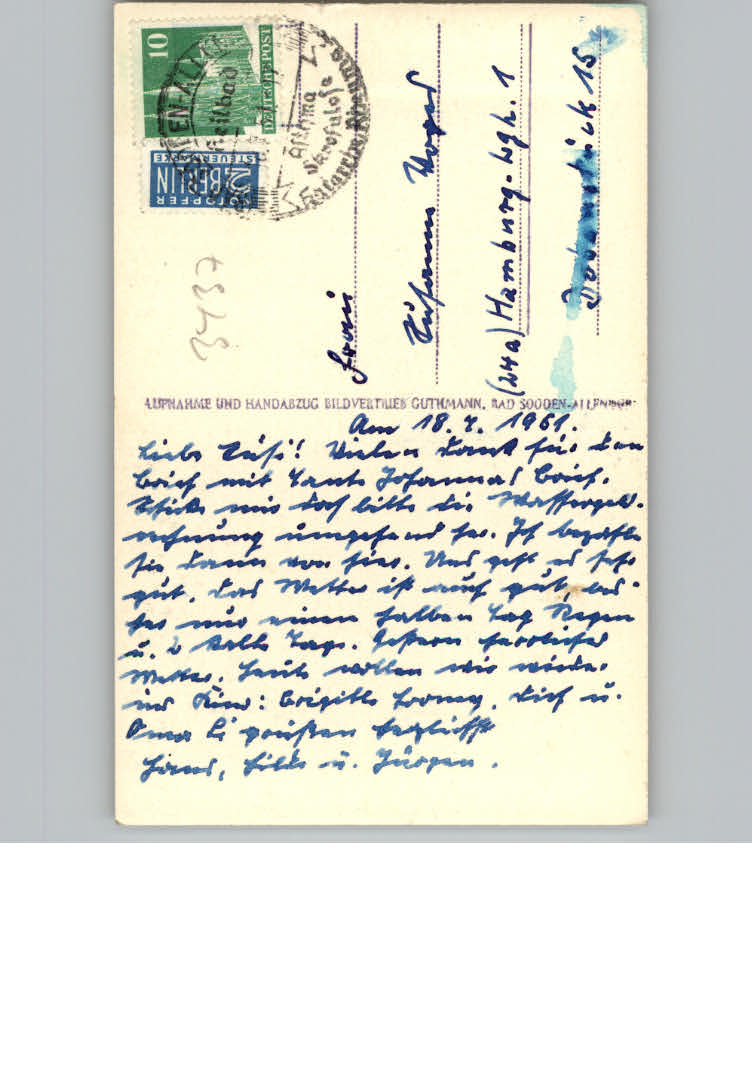 10
DEUTSCHE POST
NOTOPFER
2 BERLIN
STEUERMARKE
Heilbad
Asthma
Skrofulose
Katarrhe Rheuma
2437
Frau
Susanne Voges
(24a) Hamburg-Wgh. 1
15
AUFNAHME UND HANDABZUG BILDVERTRIEB GUTHMANN, BAD SOODEN-ALLENDORF
Am 18. 7. 1951.
Liebe Susi! Vielen Dank für den
Brief mit Tante Johannas Brief.
Schicke mir doch bitte die Wassergeld-
rechnung umgehend her. Ich bezahle
sie dann von hier. Uns geht es sehr
gut. Das Wetter ist auch gut, bis-
her nur einen halben Tag Regen
u. 2 kalte Tage. Gestern herrliches
Wetter. Heute wollen wir wieder
ins Kino: Brigitte Horney. Dich u.
Oma Li grüßen herzlichst
Hans, Hilde u. Jürgen.